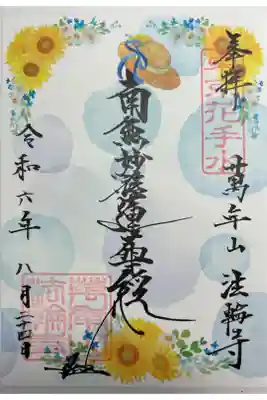 奉拝
花手水
萬年山 法輪寺
南無妙法蓮華経
令和六年 八月二十四日